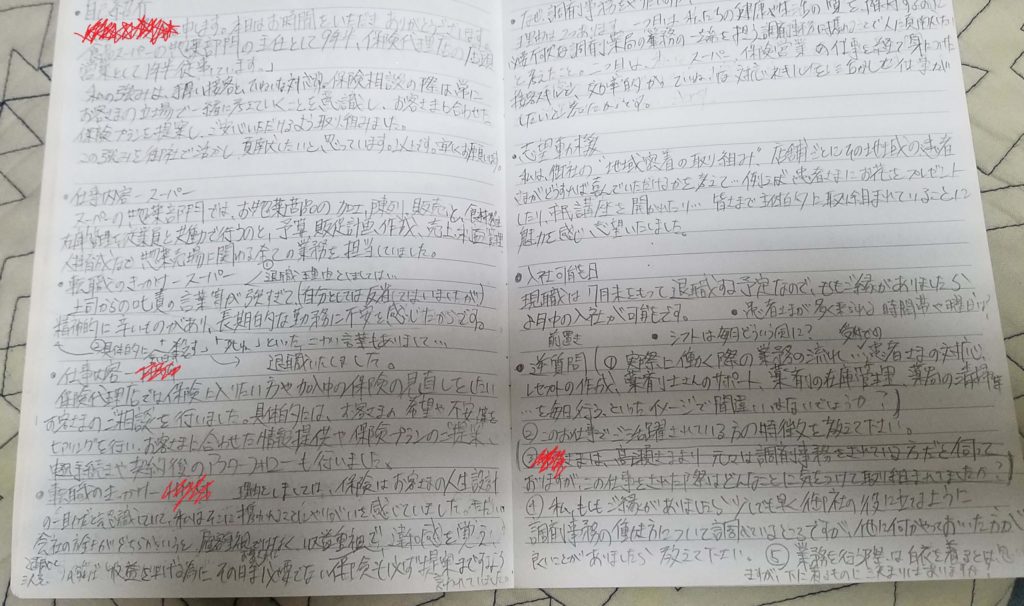 ・自己紹介
申します。本日はお時間をいただきありがとうございます。
スーパーの惣菜部門の主任として9年半、保険代理店の店頭
営業として1年半従事しています。」
私の強みは、明るい接客とていねいな対応力。保険相談の際は常に
お客さまの立場で一緒に考えていくことを意識し、お客さまに合わせた
保険プランを提案し、ご安心いただけるよう取り組みました。
この強みを御社で活かし貢献したいと思っています。以上です。
・仕事内容 - スーパー
スーパーの惣菜部門では、お惣菜商品の加工、陳列、販売と、
在庫管理を従業員と共働で行うのと、予算、販促計画作成、売上
人材育成など惣菜売場に関わる全ての業務を担当していました。
・転職のきっかけ - スーパー 退職理由としましては…
上司からの叱責の言葉等が強すぎて(自分としては反省してはいましたが)
精神的に辛いものがあり、長期的な勤務に不安を感じたからです。
具体的に「殺す」「死ね」といった 言葉もありまして…
退職いたしました。
・仕事内容 -
保険代理店では保険に入りたい方や加入中の保険の見直しをしたい
お客さまのご相談を行いました。具体的には、お客さまの希望や不安等を
ヒアリングを行い、お客さまに合わせた情報提供や保険プランのご提案、
手続きや契約後のアフターフォローも行いました。
・転職のきっかけ - 理由としましては、保険はお客さまの人生設計
の一助だと認識していて、私はそこに携われることにやりがいを感じていました。
会社の方針が どちらかというと 顧客 ではなく収益重視で違和感を覚え、
収益を上げる為に その時必要でない保険も必ず提案するよう
言われていました
理由は2つあります。一つ目は、私たちの健康や 生の質を維持するのに
調剤薬局の業務の一端を担う調剤事務に携わることで人に貢献したい
と考えたこと。二つ目は、スーパー、保険営業の仕事を経て身につけた
接客スキルと、効率的かつていねいな対応スキルを 活かした仕事が
したいと考えたからです。
・志望動機
私は御社の“地域密着の取り組み”、店舗ごとにその地域の患者
さまがどうすれば喜んでいただけるかを考えて…例えば患者さまにお花をプレゼント
したり、市民講座を開かれたり…皆さまで主体的に取り組まれていることに
魅力を感じ、志望いたしました。
・入社可能日
現職は7月末をもって退職する予定なので、もしご縁がありましたら、
8月中の入社が可能です。・患者さまが多く来られる時間帯や曜日は?
前置き ・シフトは毎月どういう風に?
・逆質問 (① 実際に働く際の業務の流れ…患者さまの対応、
レセプトの作成、薬剤師さんのサポート、薬剤の在庫管理、薬局の清掃
…を毎日行う、といったイメージで間違いはないでしょうか?)
②このお仕事でご活躍されている方の特徴を教えて下さい。
(③ さまは、 元々は調剤事務をされている方だと伺って
おりますが、この仕事をされた際はどんなことに気をつけて取り組まれましたか?)
④ 私、もしもご縁がありましたら少しでも早く御社の役に立てるように
調剤事務の働き方について調べているところですが、他に何かやっておいた方が
良いことがありましたら教えて下さい。⑤ 業務を行う際は白衣を着ると
ますが、下に着るものに決まりはありますか?